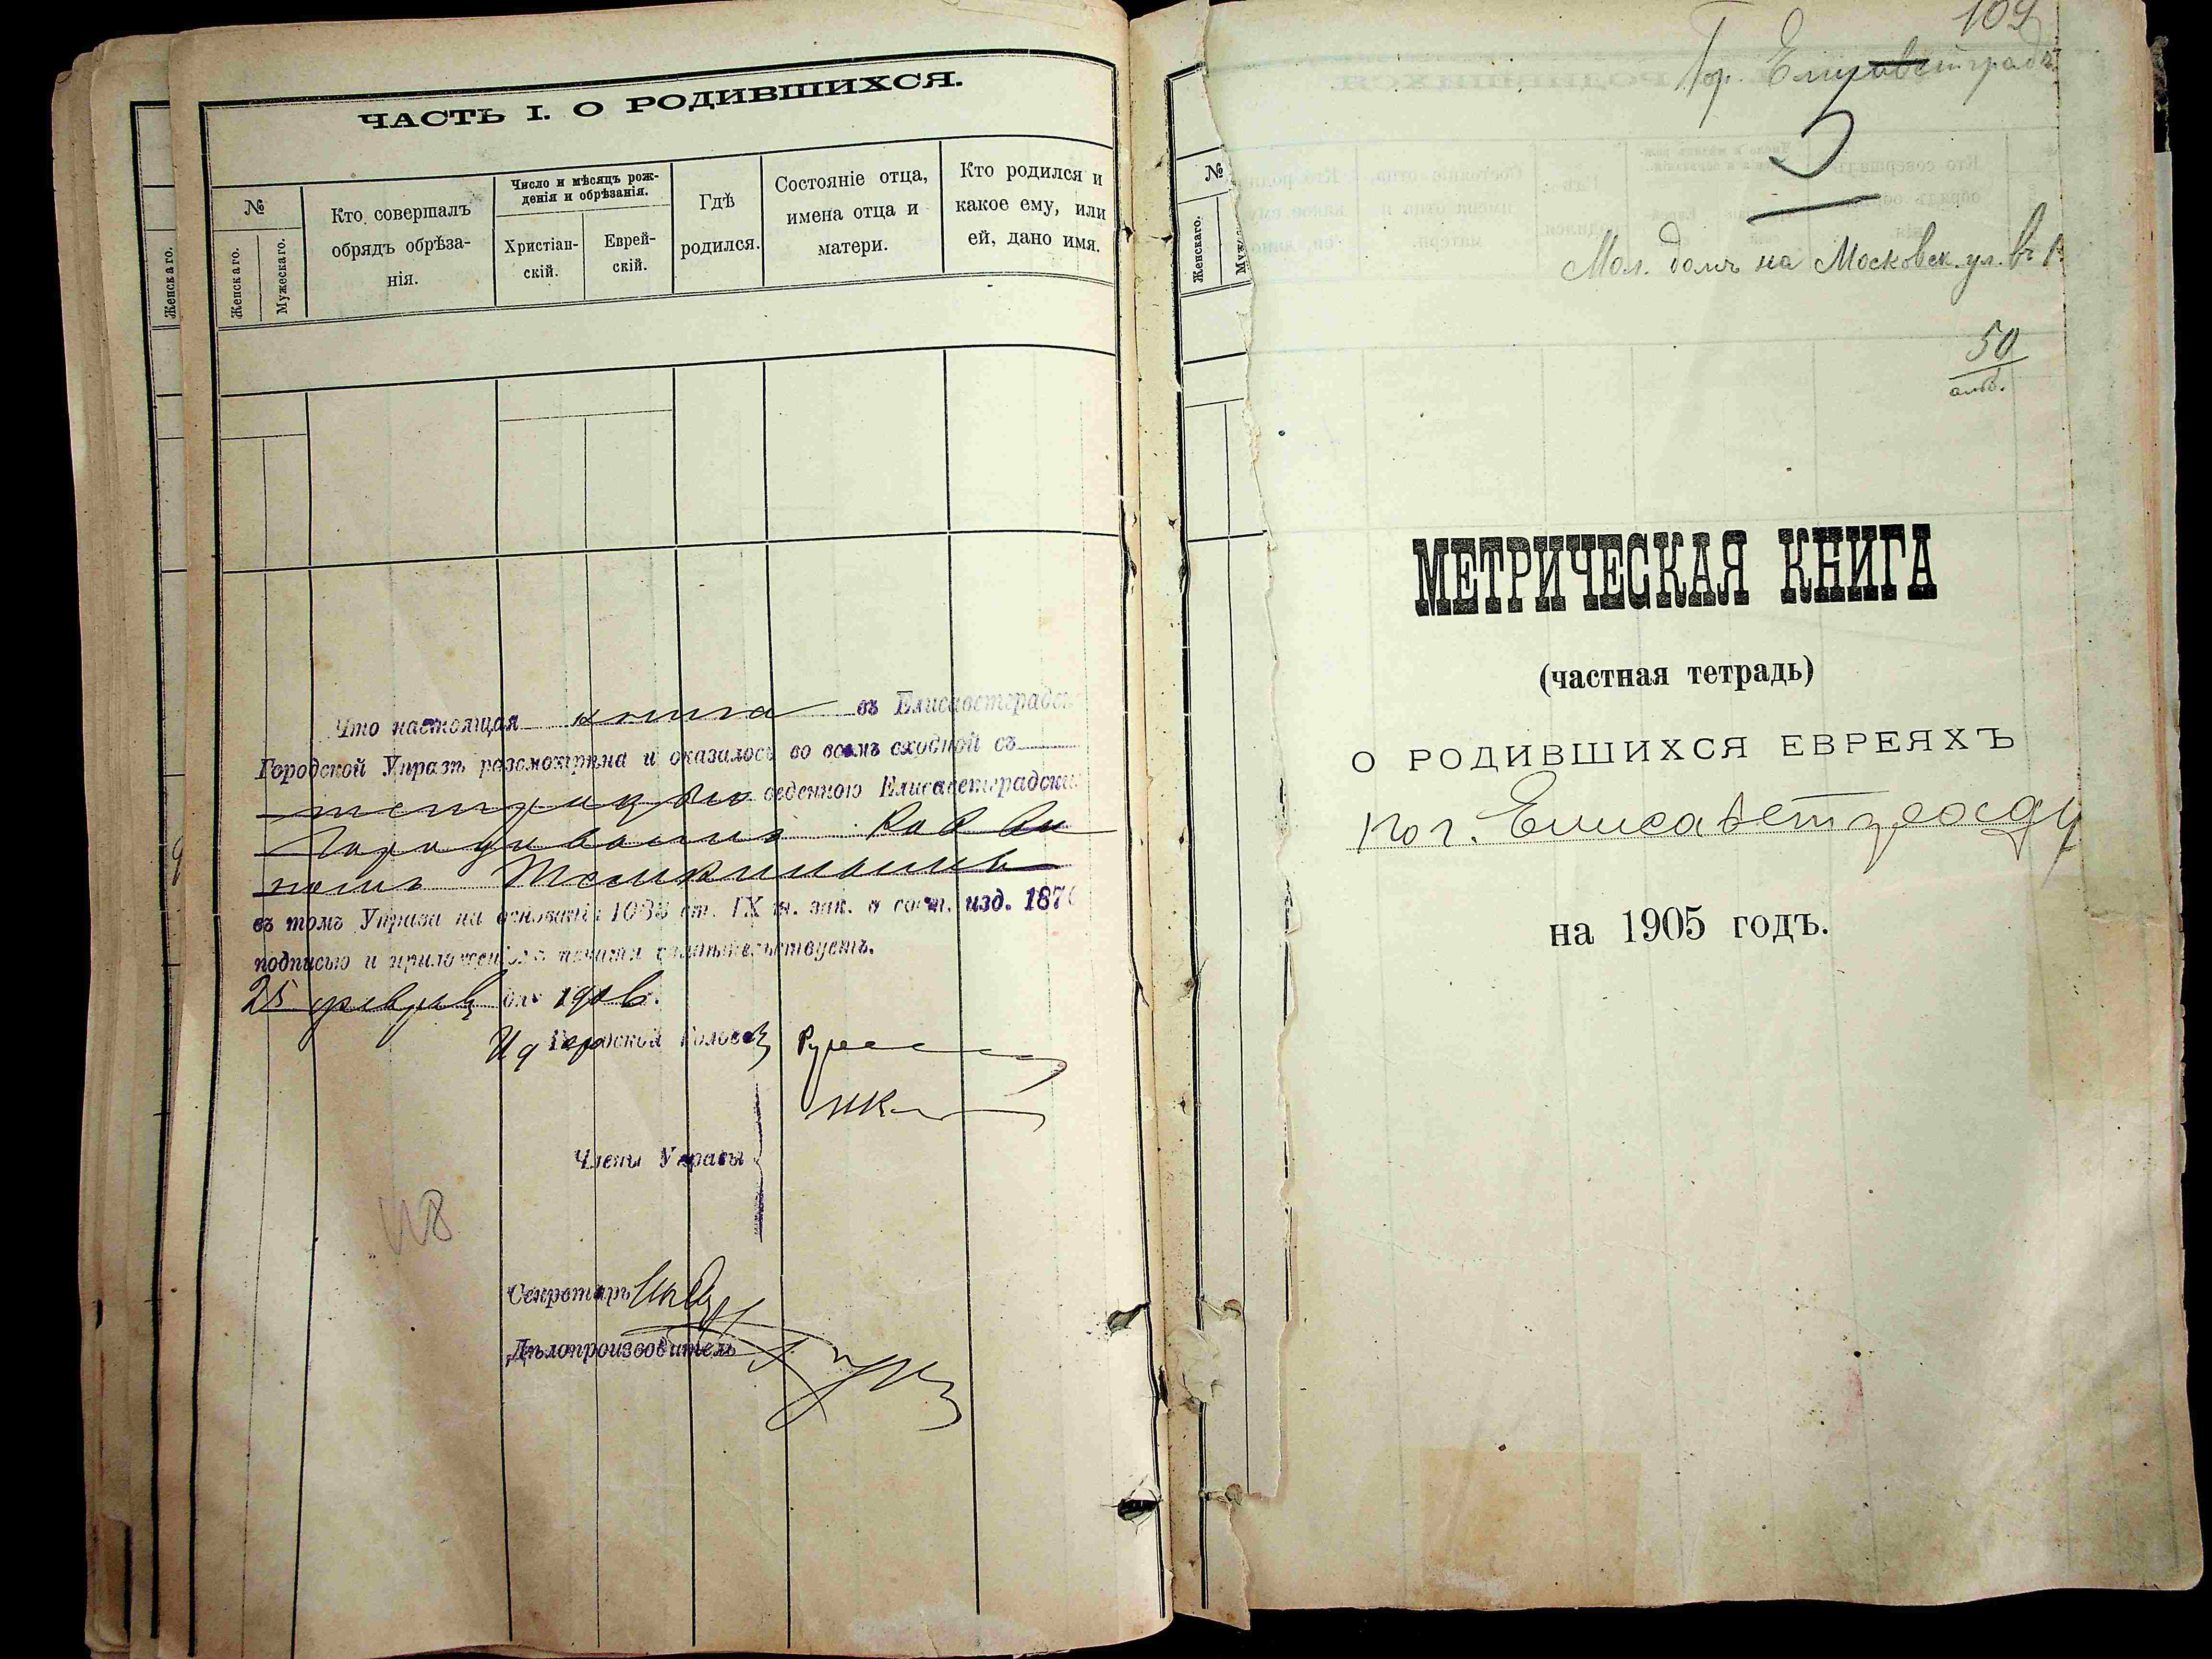 ЧАСТЬ I. О РОДИВШИХСЯ.
№
Женскаго.
Мужескаго.
Кто совершалъ
обрядъ обрѣза-
нія.
Число и мѣсяцъ рож-
денія и обрѣзанія.
Христіан-
скій.
Еврей-
скій.
Гдѣ
родился.
Состояніе отца,
имена отца и
матери.
Кто родился и
какое ему, или
ей, дано имя.
Женскаго.
Что настоящая книга въ Елисаветградск
Городской Управѣ разсмотрѣна и оказалось во всемъ сходной съ
веденною Елисаветградски
Городовымъ Равви
номъ
въ томъ Управа на основаніи ст. IX т. зак. о сост. изд. 1876
подписью и приложеніемъ печати свидѣтельствуетъ.
25 февраля дня 1906.
Ид Городской Голова
Члены Управы
Секретарь
Дѣлопроизводитель
№
Женскаго.
109
Гор. Елисаветградъ
5
Мол. домъ на Московск. ул. въ
50
МЕТРИЧЕСКАЯ КНИГА
(частная тетрадь)
О РОДИВШИХСЯ ЕВРЕЯХЪ
по г. Елисаветграду
на 1905 годъ.